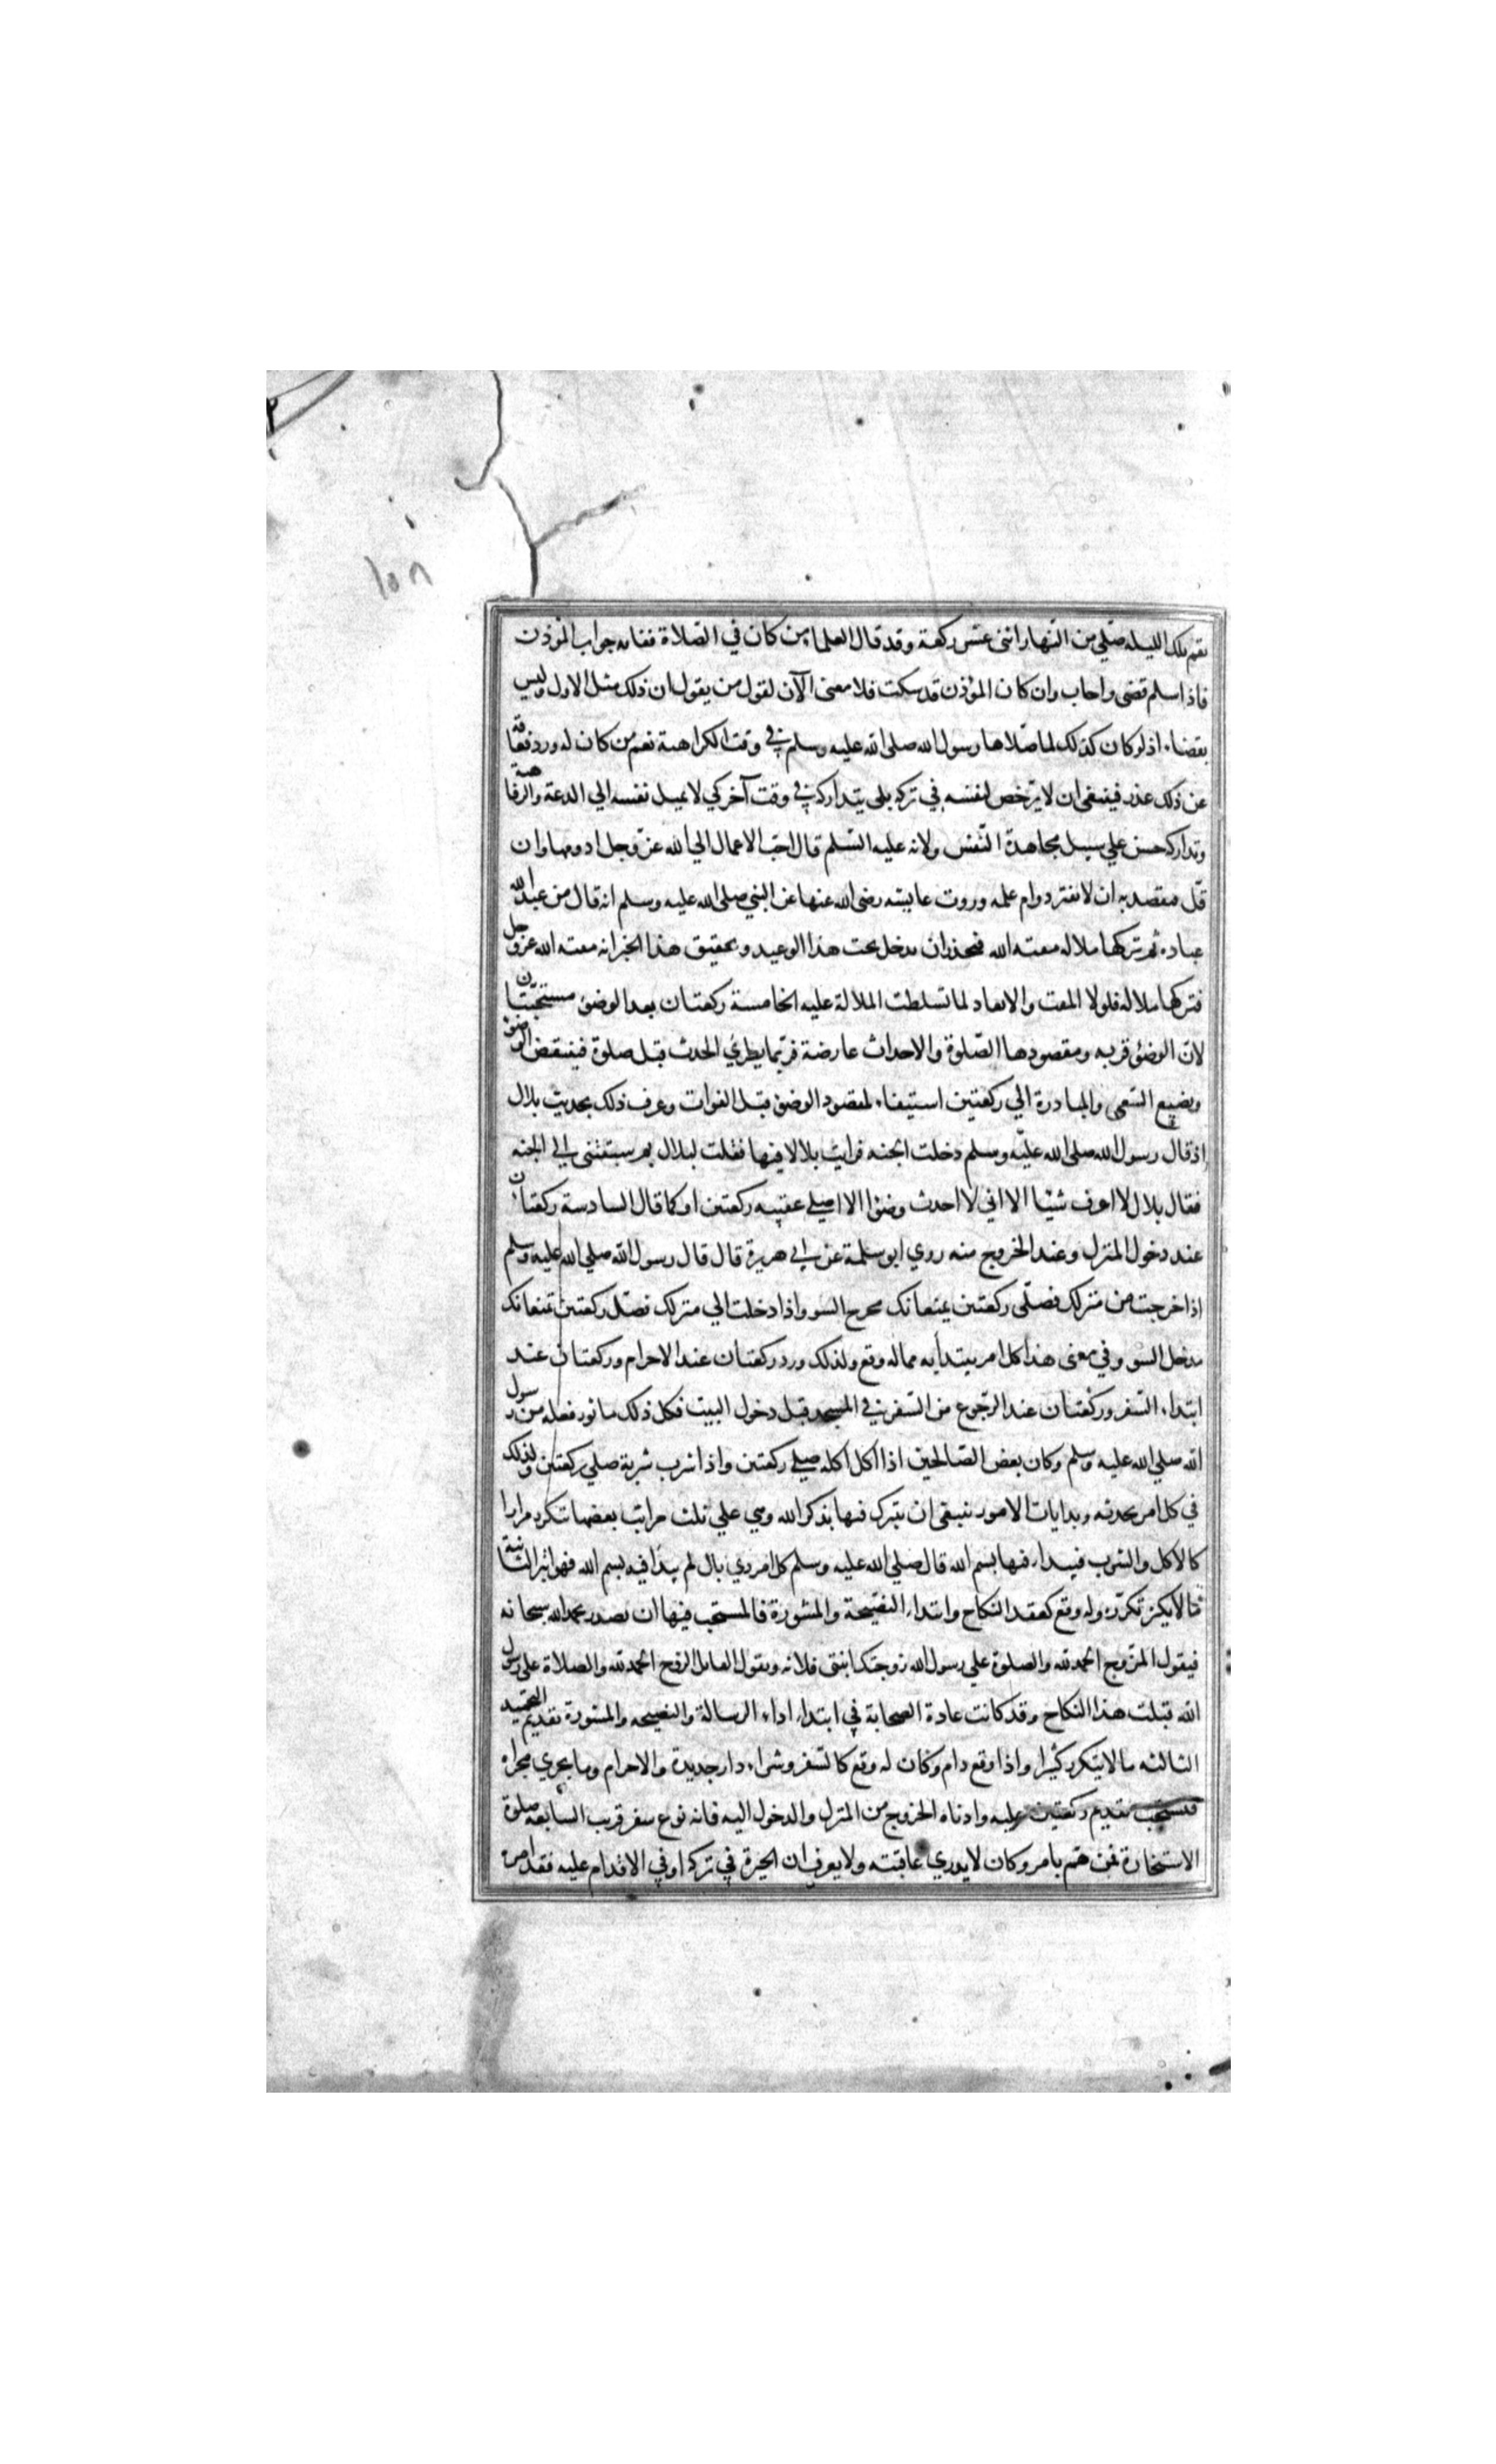 ١٥٨
يقم تلك الليله صلي من النهار اثنى عشر ركعة وقد قال العلما من كان في الصلاة ففاته جواب المؤذن
فاذا سلم قضى واجاب وان كان المؤذن قد سكت فلا معنى الآن لقول من يقول ان ذلك مثل الاول وليس
بقضاء اذ لو كان كذلك لما صلاها رسول الله صلى الله عليه وسلم في وقت الكراهة نعم من كان له ورد فعاقه
عن ذلك عذر فينبغى ان لا يرخص لنفسه في تركه بلى يتداركه في وقت آخر كي لا يميل نفسه الي الدعة والرفاهية
وتداركه حسن علي سبيل مجاهدة النفس ولانه عليه السلم قال احب الاعمال الي الله عز وجل ادومها وان
قل فيقصد به ان لا يفتر دوام عمله وروت عايشه رضى الله عنها عن النبي صلى الله عليه وسلم انه قال من عبد الله
عباده ثم تركها ملاله مقته الله فيحذر ان يدخل تحت هذا الوعيد وتحقيق هذا الخبر انه مقته الله عز وجل
فتركها ملاله فلولا المقت والابعاد لما تسلطت الملالة عليه الخامسة ركعتان بعد الوضؤ مستحبتان
لان الوضؤ قربه ومقصودها الصلوة والاحداث عارضة فربما يطرئ الحدث قبل صلوة فينتقض الوضؤ
ويضيع السعى والمبادرة الي ركعتين استيفاء لمقصود الوضؤ قبل الفوات وعرف ذلك بحديث بلال
اذ قال رسول الله صلى الله عليه وسلم دخلت الجنه فرايت بلالا فيها فقلت لبلال بم سبقتنى الي الجنه
فقال بلال لا اعرف شيئا الا اني لا احدث وضؤا الا اصلي عقيبه ركعتين او كما قال السادسة ركعتان
عند دخول المنزل وعند الخروج منه روي ابو سلمة عن ابي هريرة قال قال رسول الله صلي الله عليه وسلم
اذا خرجت من منزلك فصلى ركعتين يمنعانك مخرج السو واذا دخلت الي منزلك فصل ركعتين تمنعانك
مدخل السو وفي معنى هذا كل امر يبتدأ به مما له وقع ولذلك ورد ركعتان عند الاحرام وركعتان عند
ابتداء السفر وركعتان عند الرجوع من السفر في المسجد قبل دخول البيت فكل ذلك ماثور فعله من رسول
الله صلي الله عليه وسلم وكان بعض الصالحين اذا اكل اكله صلي ركعتين واذا شرب شربة صلي ركعتين ولذلك
في كل امر يحدثه وبدايات الامور ينبغى ان يتبرك فيها بذكر الله وهي علي ثلث مراتب بعضها تتكرر مرارا
كالاكل والشرب فيبداء فيها بسم الله قال صلي الله عليه وسلم كل امر ذي بال لم يبدأ فيه بسم الله فهو ابتر الثانية
ما لا يكثر تكرره وله وقع كعقد النكاح وابتداء النصيحة والمشورة فالمستحب فيها ان يصدر بحمد الله سبحانه
فيقول المزوج الحمد لله والصلوة علي رسول الله زوجتك ابنتى فلانه ويقول القابل الزوج الحمد لله والصلاة علي رسول
الله قبلت هذا النكاح وقد كانت عادة الصحابة في ابتداء اداء الرسالة والنصيحه والمشورة تقديم التحميد
الثالثه ما لا يتكرر كثيرا واذا وقع دام وكان له وقع كالسفر وشراء دار جديدة والاحرام وما يجري مجراه
فيستحب تقديم ركعتين عليه وادناه الخروج من المنزل والدخول اليه فانه نوع سفر قريب السابعه صلوة
الاستخارة فمن هم بامر وكان لا يدري عاقبته ولا يعرف ان الخيرة في تركه او في الاقدام عليه فقد امره